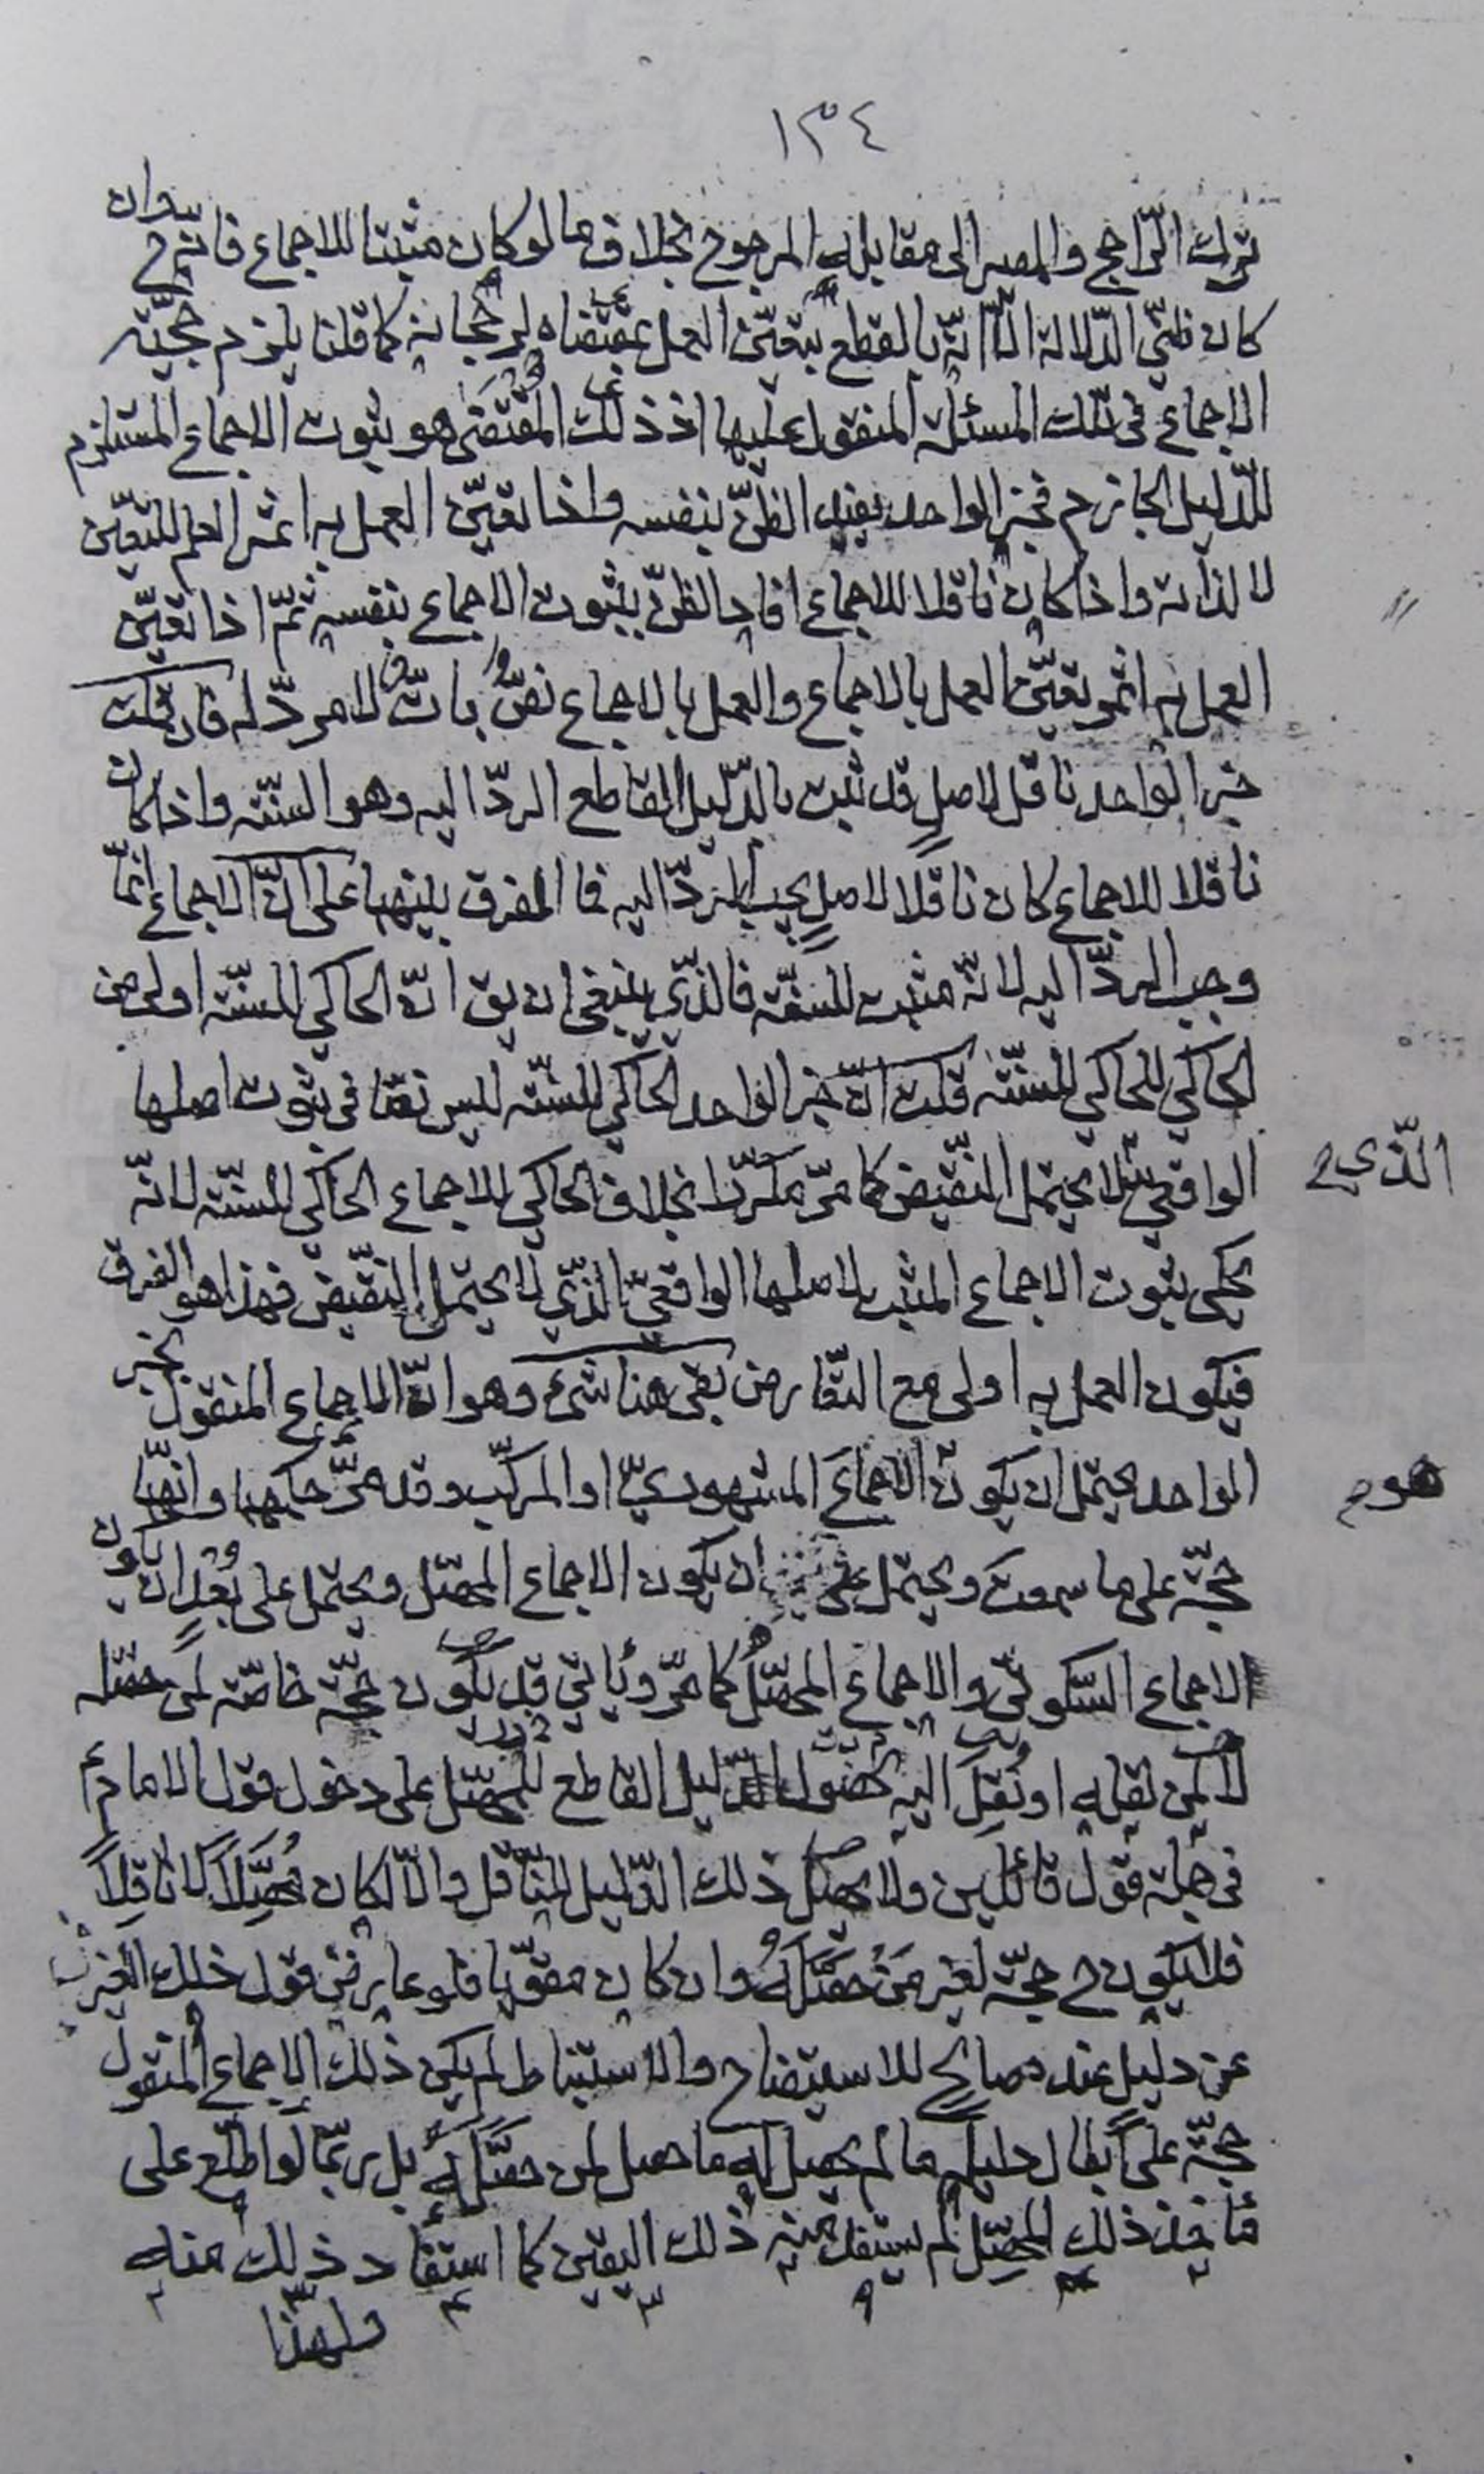 ١٣٤
ترك الرّاجح والمصير الى مقابله المرجوح بخلاف ما لو كان مثبتا للاجماع فانه ح وان
كان ظنّى الدّلالة الّا انّه بالقطع بتعيّن العمل بمقتضاه لرجحانه كما قلنا يلزم حجيّة
الاجماع فى تلك المسئلة المنقول عليها اذ ذلك المقتضى هو ثبوت الاجماع المستلزم
للدّليل الجازم فخبر الواحد يفيد الظنّ بنفسه واذا تعيّن العمل به اثمر العلم للتعيّن
لا لذاته واذا كان ناقلا للاجماع افاد الظنّ بثبوت الاجماع بنفسه ثمّ اذا تعيّن
العمل به اثمر تعيّن العمل بالاجماع والعمل بالاجماع نصّ بات لا مردّ له فان قلت
خبر الواحد ناقل لاصل قد ثبت بالدّليل القاطع الردّ اليه وهو السنّة واذا كان
ناقلا للاجماع كان ناقلا لاصلٍ يجب الردّ اليه فما الفرق بينهما على انّ الاجماع انمّا
وجب الردّ اليه لانّه مثبت للسنّة فالذّي ينبغى ان يق انّ الحاكي للسنّة اولى من
الحاكي للحاكي للسنّة قلت انّ خبر الواحد الحاكي للسنّة ليس نصّا فى ثبوت اصلها
الواقعي لا يحتمل النّقيض كما مرّ مكرّرا بخلاف الحاكي للاجماع الحاكي للسنّة لانّه
الذّي ح
يحكى ثبوت الاجماع المثبت لاصلها الواقعيّ الذّي لا يحتمل النّقيض فهذا هو الفرق
فيكون العمل به اولى مع التّعارض بقى هنا شىء وهو انّ الاجماع المنقول بخبر
الواحد يحتمل ان يكون الاجماعَ المشهوريّ او المركّب وقد مرّ حكمها وانهما
هو م
حجّة على ما سمعت ويحتمل ان يكون الاجماع المحصّل ويحتمل على بُعْدٍ ان يكون
الاجماع السّكوتّى والاجماع المحصّلُ كما مرّ ويأتي قد يكون حجّة خاصّة لمن حصّله
لا لمن نقله او نُقِلَ اليه لحصول الدّليل القاطع للمحصّل على دخول قول الامام ع
فى جملة قول قائلين ولا يحصل ذلك الدّليل للنّاقل والّا لكان مُحصِّلاً لا ناقلاً
فلا يكون ح حجّة لغير مَنْ حصّلَهُ وان كان مقوّيا فلو عارض قول ذلك الغير
عن دليل عنده صالح للاستيضاح والاستنباط لم يكن ذلك الاجماع المنقول
حجّة على ابطال دليله ما لم يحصل له ما حصل لمن حصَّلَهُ بل ربّما لو اطّلع على
مأخذ ذلك المحصِّل لم يستفد منه ذلك اليقين كما استفاد ذلك منه
ولهذا